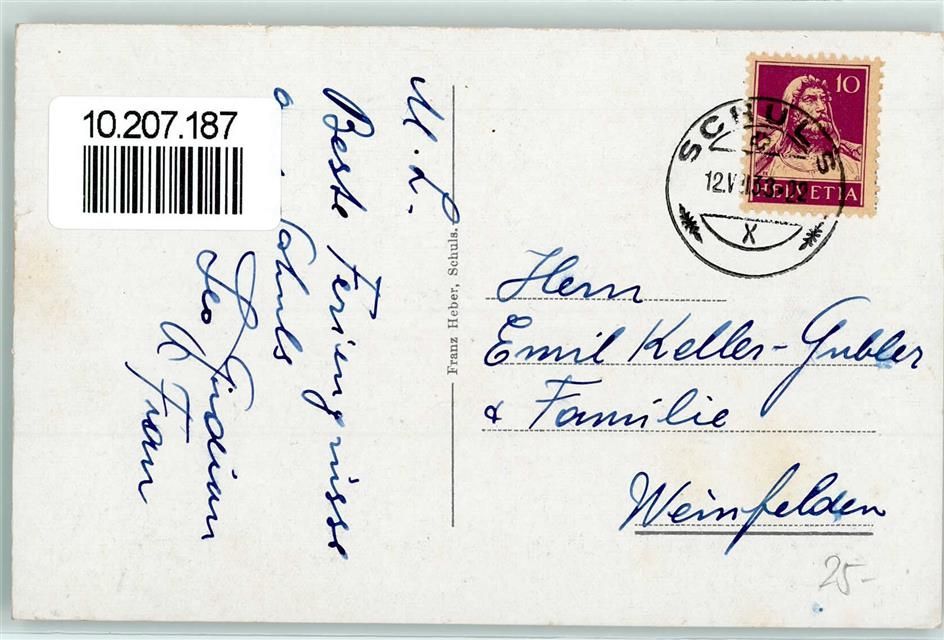 10.207.187
M. L.
Beste Feriengrüsse
a. Schuls
Leo
& Frau
Franz Heber, Schuls.
10
HELVETIA
SCHULS
12.V 33-22
X
Herrn
Emil Keller-Gubler
& Familie
Weinfelden
25-